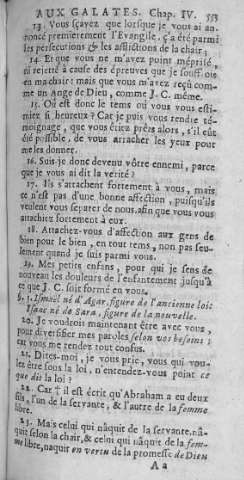 AUX GALATES. Chap. IV. 553
13. Vous sçavez que lorsque je vous ai an-
noncé premierement l'Evangile, ç'a été parmi
les persécutions & les afflictions de la chair;
14. Et que vous ne m'avez point méprisé,
ni rejetté à cause des épreuves que je souffrois
en ma chair: mais que vous m'avez reçu com-
me un Ange de Dieu, comme J. C. même.
15. Où est donc le tems où vous vous esti-
miez si heureux? Car je puis vous rendre té-
moignage, que vous étiez prêts alors, s'il eût
été possible, de vous arracher les yeux pour
me les donner.
16. Suis-je donc devenu vôtre ennemi, parce
que je vous ai dit la verité?
17. Ils s'attachent fortement à vous, mais
ce n'est pas d'une bonne affection, puisqu'ils
veulent vous séparer de nous, afin que vous vous
attachiez fortement à eux.
18. Attachez-vous d'affection aux gens de
bien pour le bien, en tout tems, non pas seu-
lement quand je suis parmi vous.
19. Mes petits enfans, pour qui je sens de
nouveau les douleurs de l'enfantement jusqu'à
ce que J. C. soit formé en vous.
§. 1. Ismaël né d'Agar, figure de l'ancienne loi:
Isaac né de Sara, figure de la nouvelle.
20. Je voudrois maintenant être avec vous,
pour diversifier mes paroles selon vos besoins;
car vous me rendez tout confus.
21. Dites-moi, je vous prie, vous qui vou-
lez être sous la loi, n'entendez-vous point ce
que dit la loi?
22. Car † il est écrit qu'Abraham a eu deux
fils, l'un de la servante, & l'autre de la femme
libre.
23. Mais celui qui nâquit de la servante, nâ-
quit selon la chair, & celui qui nâquit de la fem-
me libre, naquit en vertu de la promesse de Dieu
A a